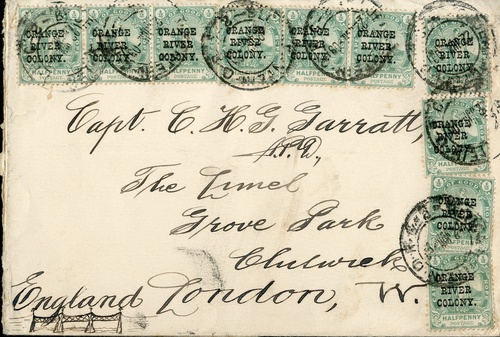 ORANGE RIVER COLONY. ORANGE RIVER COLONY. ORANGE RIVER COLONY. ORANGE RIVER COLONY. ORANGE RIVER COLONY. ORANGE RIVER COLONY. ORANGE RIVER COLONY.
HALFPENNY HALFPENNY HALFPENNY HALFPENNY HALFPENNY HALFPENNY
ORANGE RIVER COLONY.
Capt. C. H. G. Garratt,
A.P.D.,
The
Grove Park
ORANGE RIVER COLONY.
Chiswick
England London, W.
ORANGE RIVER COLONY.
HALFPENNY
POSTAGE